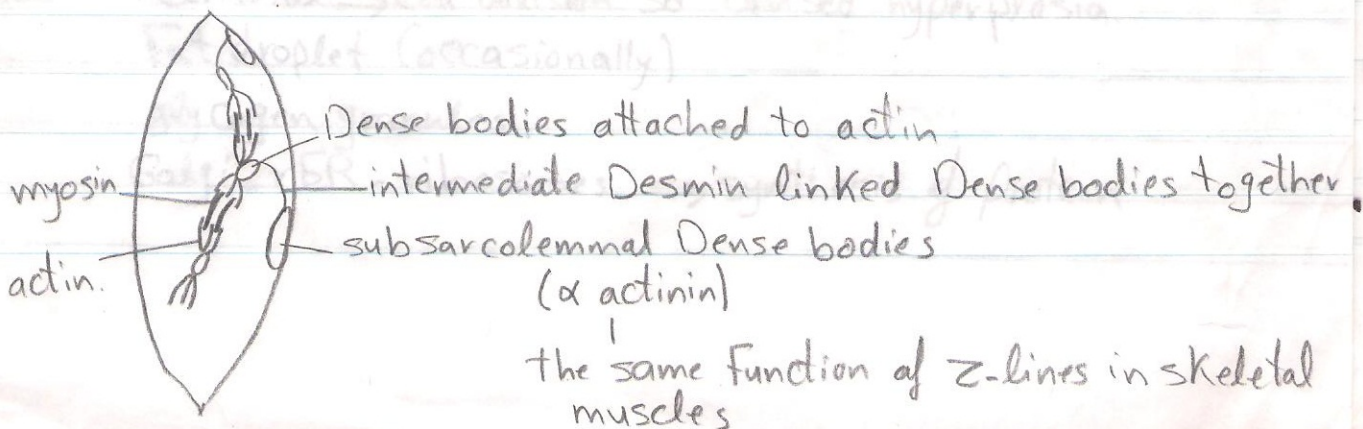 Fat droplet (occasionally)
Dense bodies attached to actin
myosin
intermediate Desmin linked Dense bodies together
subsarcolemmal Dense bodies
actin.
(α actinin)
the same function of z-lines in skeletal
muscles